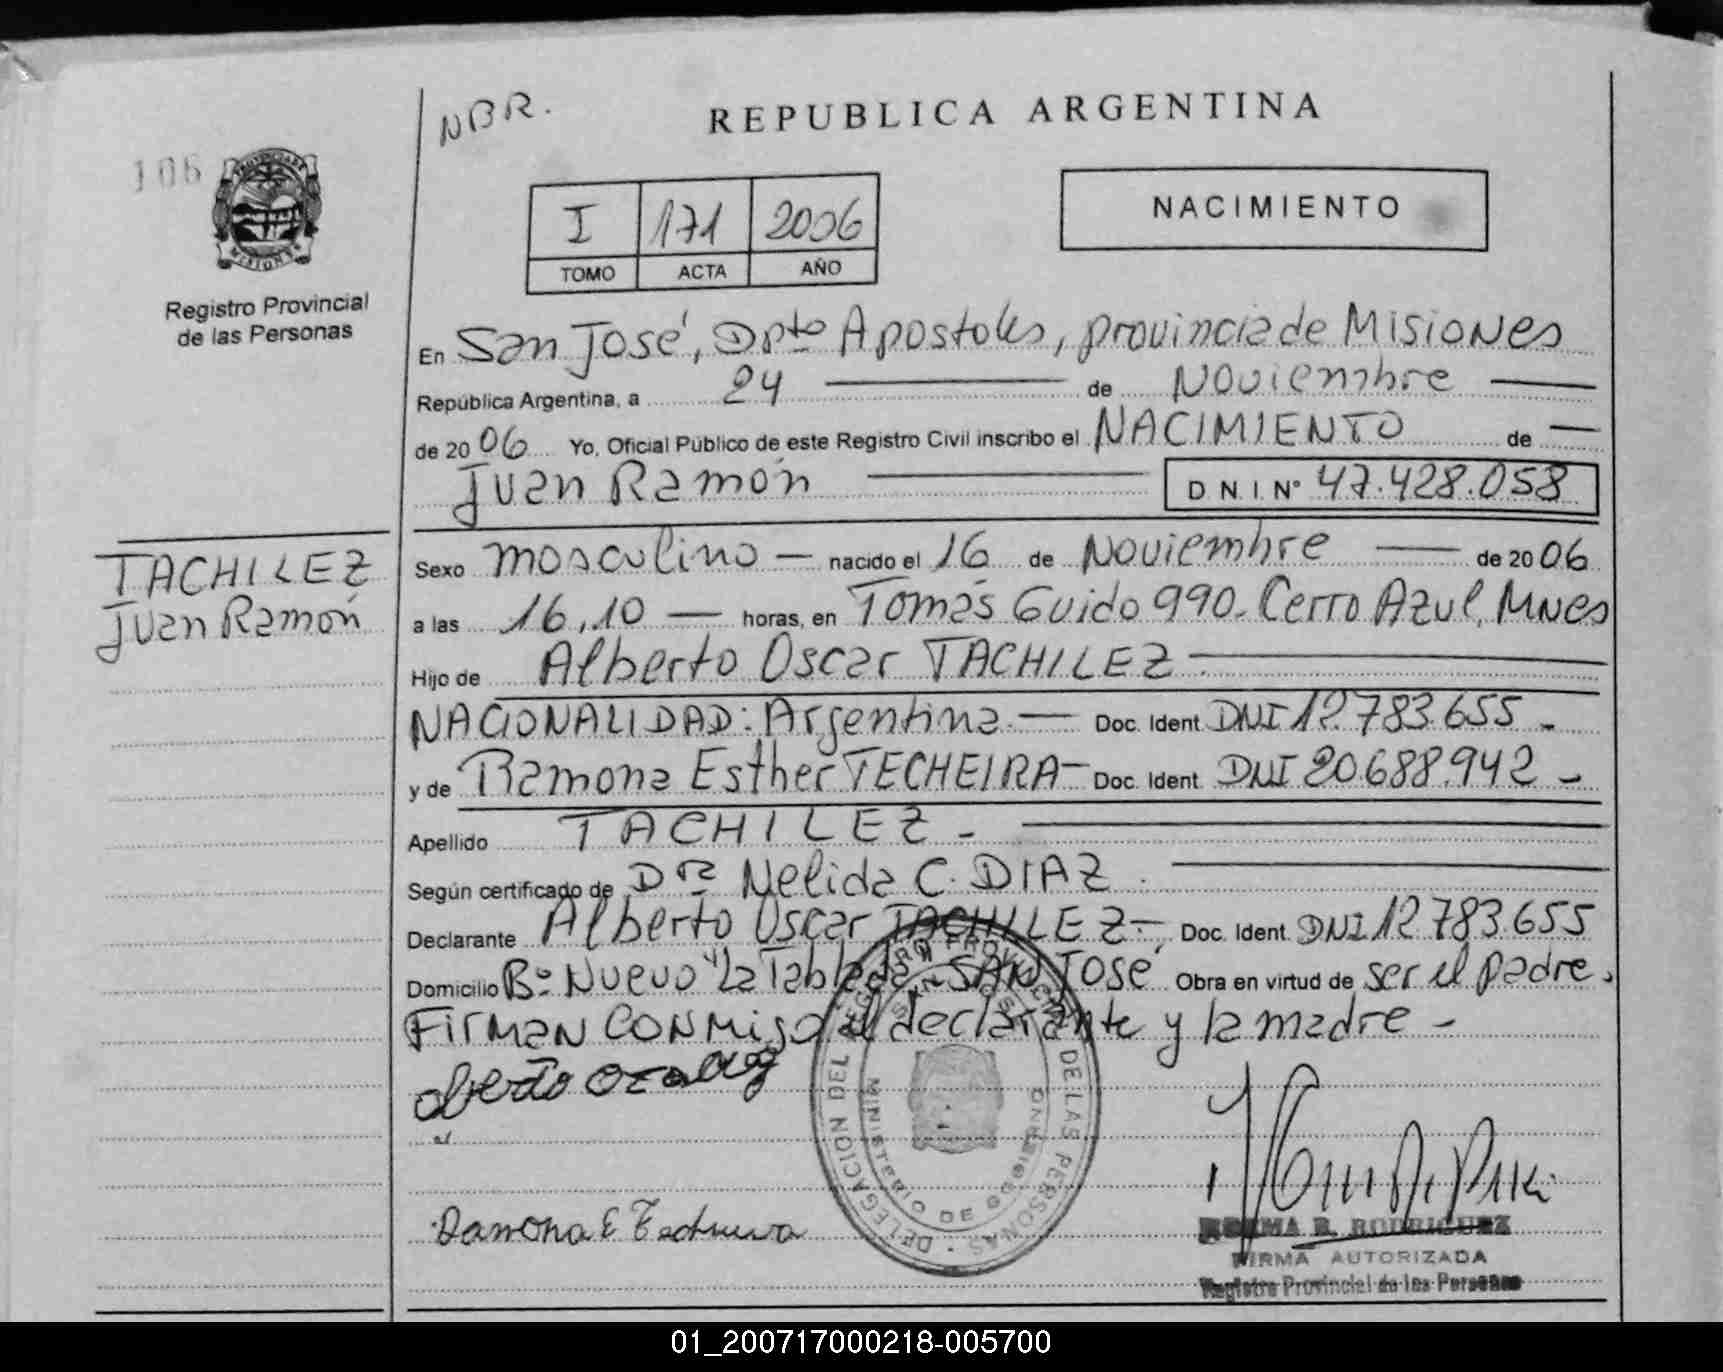 NBR.
REPUBLICA ARGENTINA
106
PROVINCIA DE
MISIONES
Registro Provincial
de las Personas
I 171 2006
TOMO ACTA AÑO
NACIMIENTO
En San José, Dpto Apostoles, provincia de Misiones
República Argentina, a 24 de Noviembre
de 2006 Yo, Oficial Público de este Registro Civil inscribo el NACIMIENTO de
Juan Ramón
D N I Nº 47.428.058
TACHILEZ
Juan Ramón
Sexo masculino - nacido el 16 de Noviembre de 2006
a las 16,10 horas, en Tomás Guido 990. Cerro Azul, Mnes
Hijo de Alberto Oscar TACHILEZ
NACIONALIDAD: Argentina. Doc. Ident. DNI 12.783.655 -
y de Ramona Esther TECHEIRA - Doc. Ident. DNI 20.688.942 -
Apellido TACHILEZ -
Según certificado de Dra Nelida C. DIAZ.
Declarante Alberto Oscar TACHILEZ -, Doc. Ident. DNI 12783.655
Domicilio Bº Nuevo "La Tablada" SAN JOSÉ Obra en virtud de ser el padre.
Firman conmigo el declarante y la madre -
DELEGACION DEL REGISTRO PROVINCIAL DE LAS PERSONAS
SAN JOSE
MINISTERIO DE GOBIERNO
Ramona E Techeira
NORMA R. RODRIGUEZ
FIRMA AUTORIZADA
Registro Provincial de las Personas
01_200717000218-005700